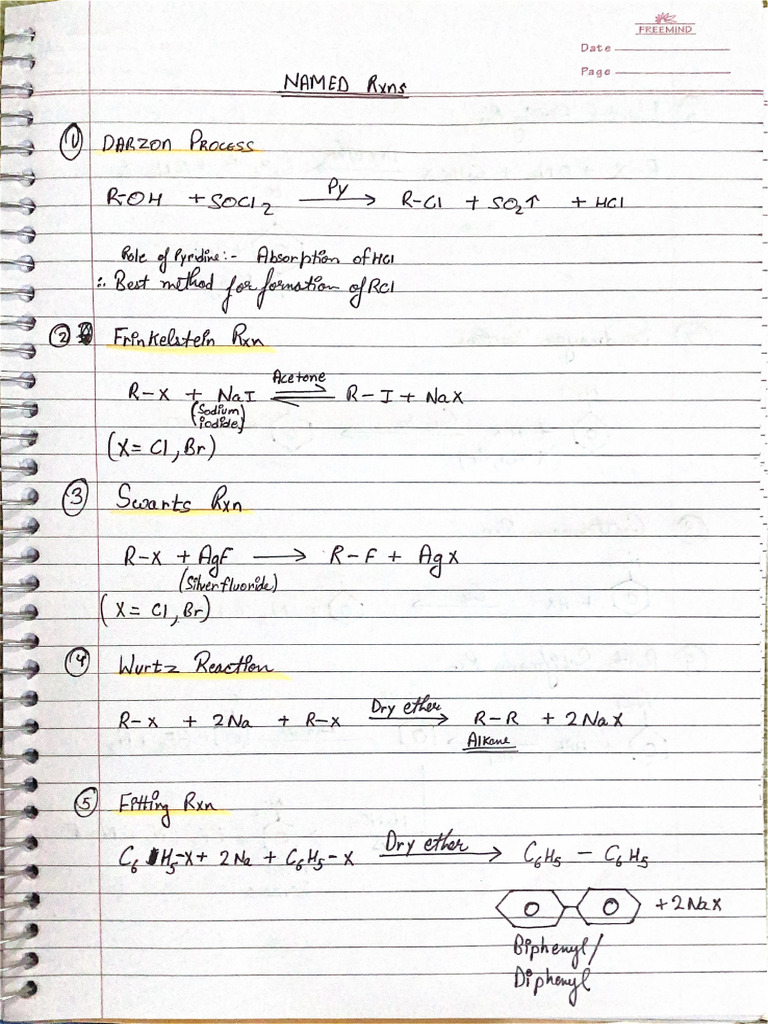 FREEMIND
Date
Page
NAMED Rxns
① DARZON PROCESS
R-OH + SOCl2 Py → R-Cl + SO2↑ + HCl
Role of Pyridine:- Absorption of HCl
∴ Best method for formation of RCl
② Frinkelstein Rxn
R-X + NaI Acetone ⇌ R-I + NaX
(Sodium
iodide)
(X = Cl, Br)
③ Swarts Rxn
R-X + AgF → R-F + AgX
(Silver fluoride)
(X = Cl, Br)
④ Wurtz Reaction
R-X + 2Na + R-X Dry ether → R-R + 2NaX
Alkane
⑤ Fitting Rxn
C6H5-X + 2Na + C6H5-X Dry ether → C6H5 - C6H5
+ 2NaX
Biphenyl/
Diphenyl